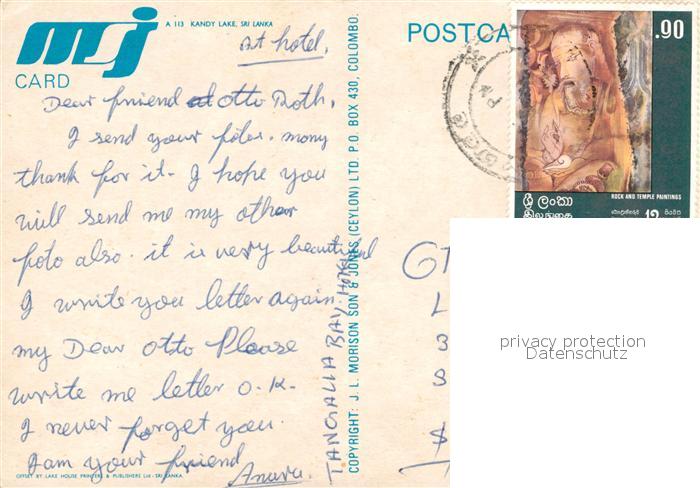 mj
CARD
A 113 KANDY LAKE, SRI LANKA
At hotel,
Dear friend at otto Roth,
I send your foto. mony
thank for it. I hope you
will send me my other
foto also. it is very beautiful
I write you letter again.
my Dear otto Please
write me letter o.k.
I never forget you.
I am your friend
Anura.
OFFSET BY LAKE HOUSE PRINTERS & PUBLISHERS Ltd - SRI LANKA.
TANGALLA BAY. HOTEL
COPYRIGHT: J. L. MORISON SON & JONES (CEYLON) LTD. P.O. BOX 430, COLOMBO.
POSTCA
PM
.90
ROCK AND TEMPLE PAINTINGS
ශ්‍රී ලංකා
இலங்கை
privacy protection
Datenschutz